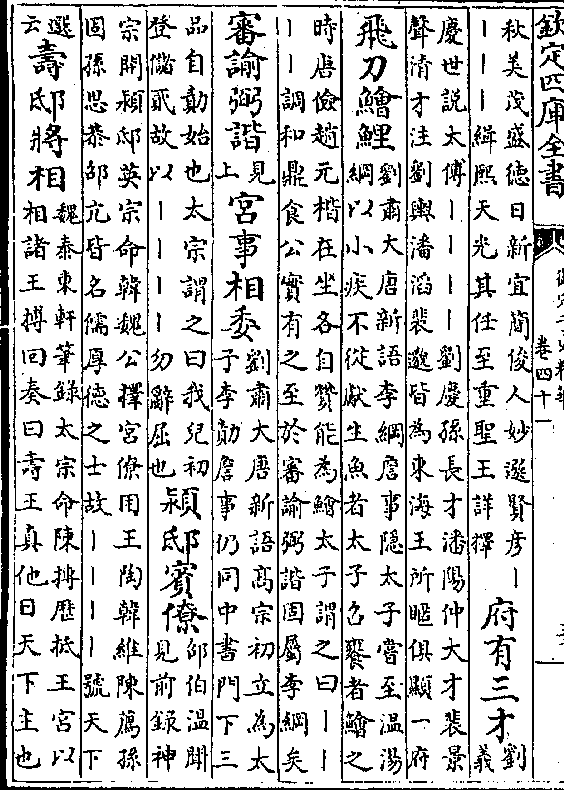 欽定四庫全書
御定子史精華
卷四十一
秋美茂盛德日新宜簡俊人妙選賢彦丨
丨丨丨緝熙天光其任至重聖王詳擇
府有三才
劉
義
慶世説太傅丨丨丨丨劉慶孫長才潘陽仲大才裴景
聲清才注劉輿潘滔裴邈皆為東海王所暱俱顯一府
飛刀鱠鯉
劉肅大唐新語李綱詹事隱太子嘗至温湯
綱以小疾不從獻生魚者太子召饔者鱠之
時唐儉趙元楷在坐各自贊能為鱠太子謂之曰丨丨
丨丨調和鼎食公實有之至於審諭弼諧固屬李綱矣
審諭弼諧
見
上
宮事相委
劉肅大唐新語髙宗初立為太
子李勣詹事仍同中書門下三
品自勣始也太宗謂之曰我兒初
登儲貳故以丨丨丨丨勿辭屈也
潁邸賓僚
邵伯温聞
見前録神
宗開潁邸英宗命韓魏公擇宮僚用王陶韓維陳薦孫
固孫思恭邵亢皆名儒厚德之士故丨丨丨丨號天下
選
云
壽邸將相
魏泰東軒筆録太宗命陳摶歷抵王宮以
相諸王摶回奏曰壽王真他日天下主也